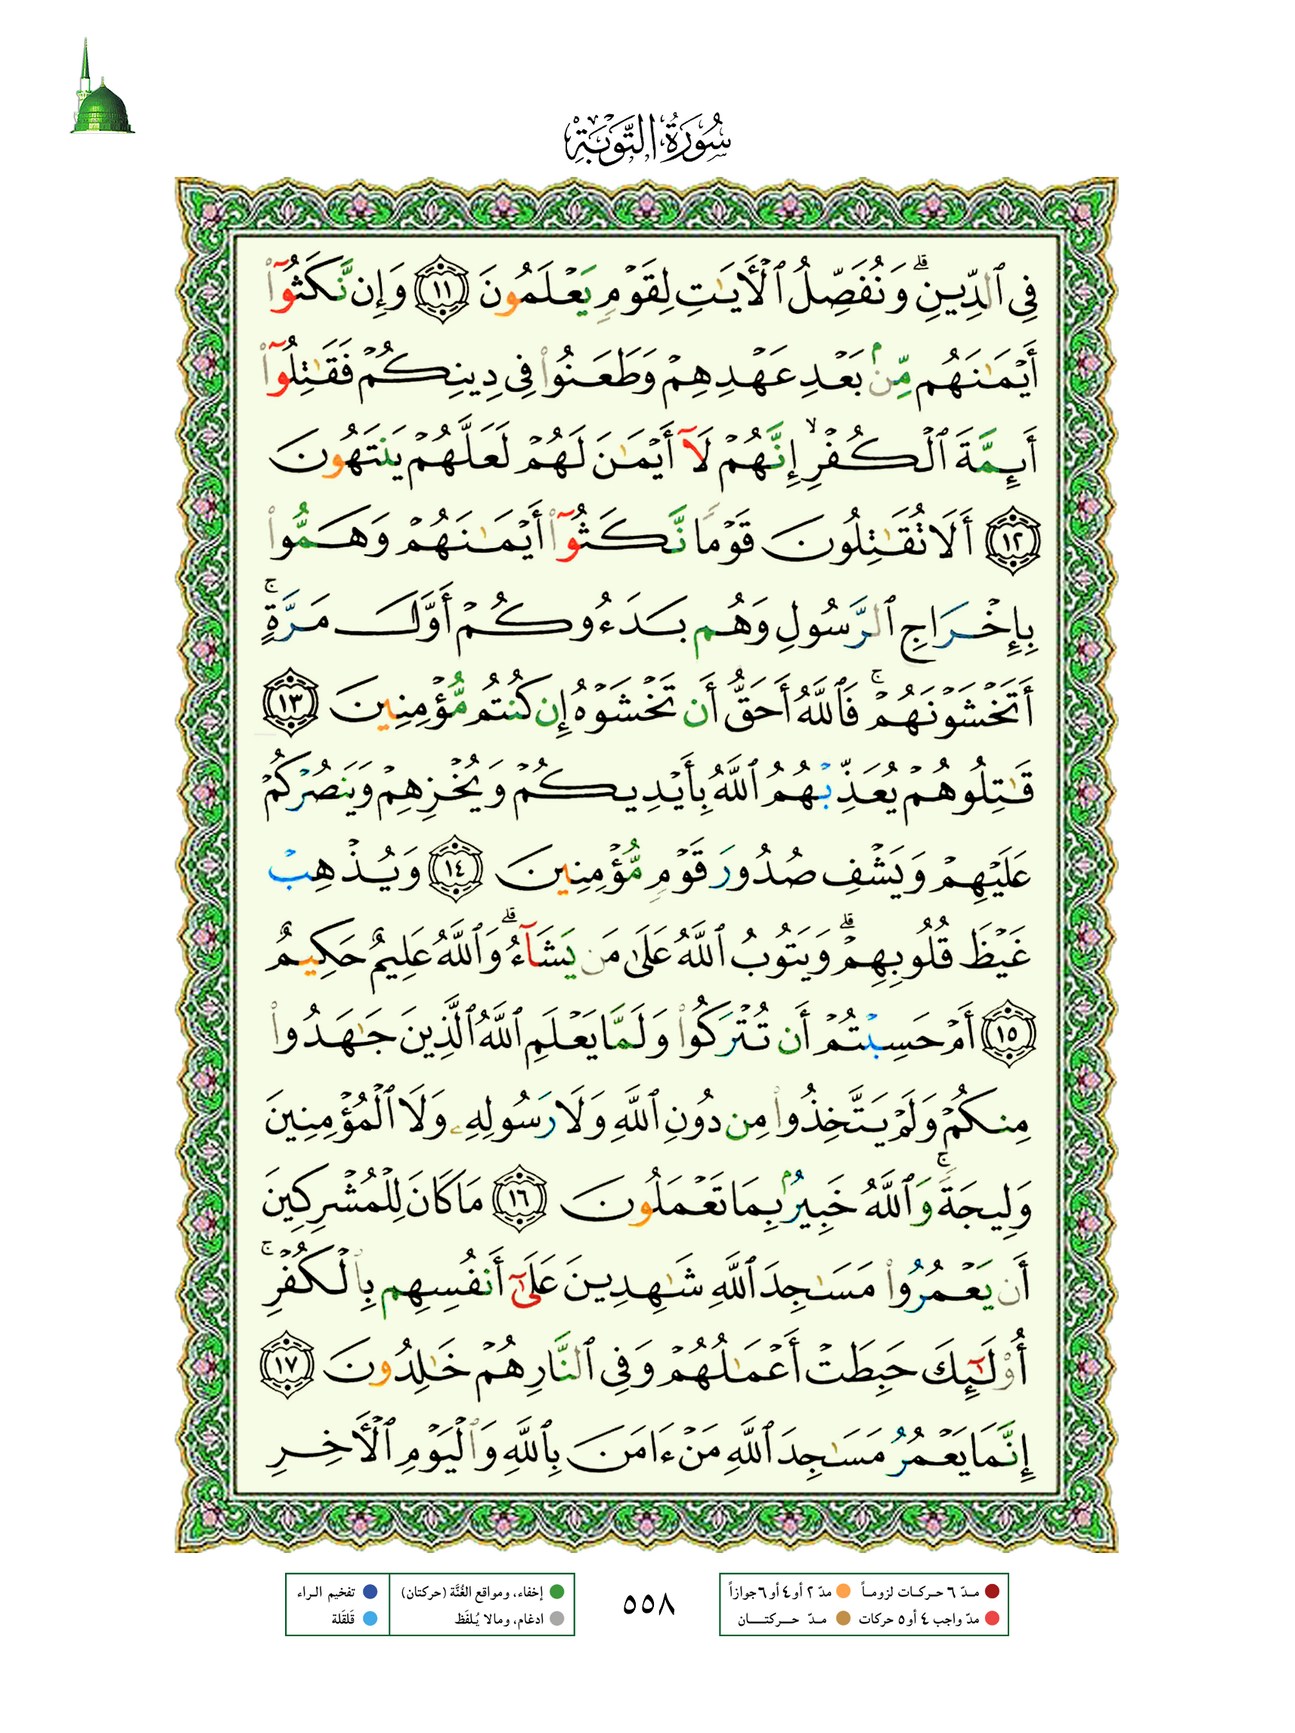 سُورَةُ التَّوْبَةِ
فِى ٱلدِّينِ ۗ وَنُفَصِّلُ ٱلْأَيَـٰتِ لِقَوْمٍ يَعْلَمُونَ ١١ وَإِن نَّكَثُوٓا۟
أَيْمَـٰنَهُم مِّنۢ بَعْدِ عَهْدِهِمْ وَطَعَنُوا۟ فِى دِينِكُمْ فَقَـٰتِلُوٓا۟
أَئِمَّةَ ٱلْكُفْرِ ۙ إِنَّهُمْ لَآ أَيْمَـٰنَ لَهُمْ لَعَلَّهُمْ يَنتَهُونَ
١٢ أَلَا تُقَـٰتِلُونَ قَوْمًا نَّكَثُوٓا۟ أَيْمَـٰنَهُمْ وَهَمُّوا۟
بِإِخْرَاجِ ٱلرَّسُولِ وَهُم بَدَءُوكُمْ أَوَّلَ مَرَّةٍ ۚ
أَتَخْشَوْنَهُمْ ۚ فَٱللَّهُ أَحَقُّ أَن تَخْشَوْهُ إِن كُنتُم مُّؤْمِنِينَ ١٣
قَـٰتِلُوهُمْ يُعَذِّبْهُمُ ٱللَّهُ بِأَيْدِيكُمْ وَيُخْزِهِمْ وَيَنصُرْكُمْ
عَلَيْهِمْ وَيَشْفِ صُدُورَ قَوْمٍ مُّؤْمِنِينَ ١٤ وَيُذْهِبْ
غَيْظَ قُلُوبِهِمْ ۗ وَيَتُوبُ ٱللَّهُ عَلَىٰ مَن يَشَآءُ ۗ وَٱللَّهُ عَلِيمٌ حَكِيمٌ
١٥ أَمْ حَسِبْتُمْ أَن تُتْرَكُوا۟ وَلَمَّا يَعْلَمِ ٱللَّهُ ٱلَّذِينَ جَـٰهَدُوا۟
مِنكُمْ وَلَمْ يَتَّخِذُوا۟ مِن دُونِ ٱللَّهِ وَلَا رَسُولِهِۦ وَلَا ٱلْمُؤْمِنِينَ
وَلِيجَةً ۚ وَٱللَّهُ خَبِيرٌۢ بِمَا تَعْمَلُونَ ١٦ مَا كَانَ لِلْمُشْرِكِينَ
أَن يَعْمُرُوا۟ مَسَـٰجِدَ ٱللَّهِ شَـٰهِدِينَ عَلَىٰٓ أَنفُسِهِم بِٱلْكُفْرِ ۚ
أُو۟لَـٰٓئِكَ حَبِطَتْ أَعْمَـٰلُهُمْ وَفِى ٱلنَّارِ هُمْ خَـٰلِدُونَ ١٧
إِنَّمَا يَعْمُرُ مَسَـٰجِدَ ٱللَّهِ مَنْ ءَامَنَ بِٱللَّهِ وَٱلْيَوْمِ ٱلْأَخِرِ
مـدّ ٦ حركات لزوماً مدّ ٢ أو ٤ أو ٦ جوازاً
مدّ واجب ٤ أو ٥ حركات مدّ حركتان
٥٥٨
إخفاء، ومواقع الغُنَّة (حركتان) تفخيم الراء
ادغام، ومالا يُلفَظ قلقلة